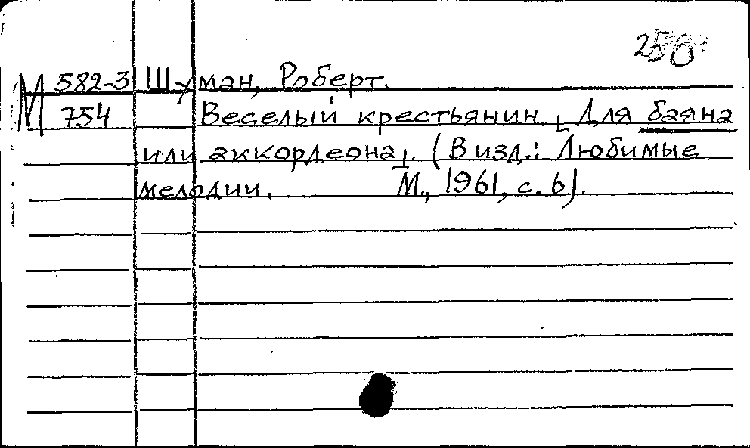 250
М 582-3 Шуман, Роберт.
754 Веселый крестьянин [Для баяна
или аккордеона]. (В изд.: Любимые
мелодии. М., 1961, с. 6).